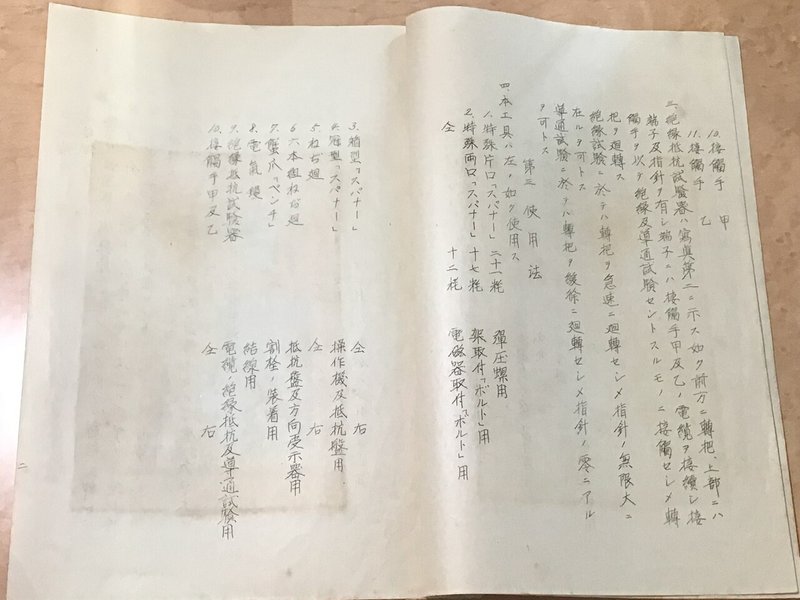 10.接觸手 甲
11.接觸手 乙
三、絶縁抵抗試驗器ハ寫眞第二ニ示ス如ク前方ニ轉把、上部ニハ
端子及指針ヲ有シ端子ニハ接觸手甲及乙ノ電纜ヲ接續シ接
觸手ヲ以テ絶縁及導通試驗セントスルモノニ接觸セシメ轉
把ヲ廻轉ス
絶縁試驗ニ於テハ轉把ヲ急速ニ廻轉セシメ指針ノ無限大ニ
在ルヲ可トス
導通試驗ニ於テハ轉把ヲ緩徐ニ廻轉セシメ指針ノ零ニアル
ヲ可トス
第三 使用法
四、本工具ハ左ノ如ク使用ス
1.特殊片口「スパナー」 二十一粍 彈圧螺用
2.特殊両口「スパナー」 十七粍 架取付「ボルト」用
仝 十二粍 電磁器取付「ボルト」用
3.箱型「スパナー」 仝 右
4.冠型「スパナー」 操作機及抵抗盤用
5.ねぢ廻 仝 右
6.六本組ねぢ廻 抵抗盤及方向変示器用
7.蟹爪「ペンチ」 割栓ノ装着用
8.電氣鏝 結線用
9.絶縁抵抗試驗器 電纜ノ絶縁抵抗及導通試驗用
10.接觸手甲及乙 仝 右
二